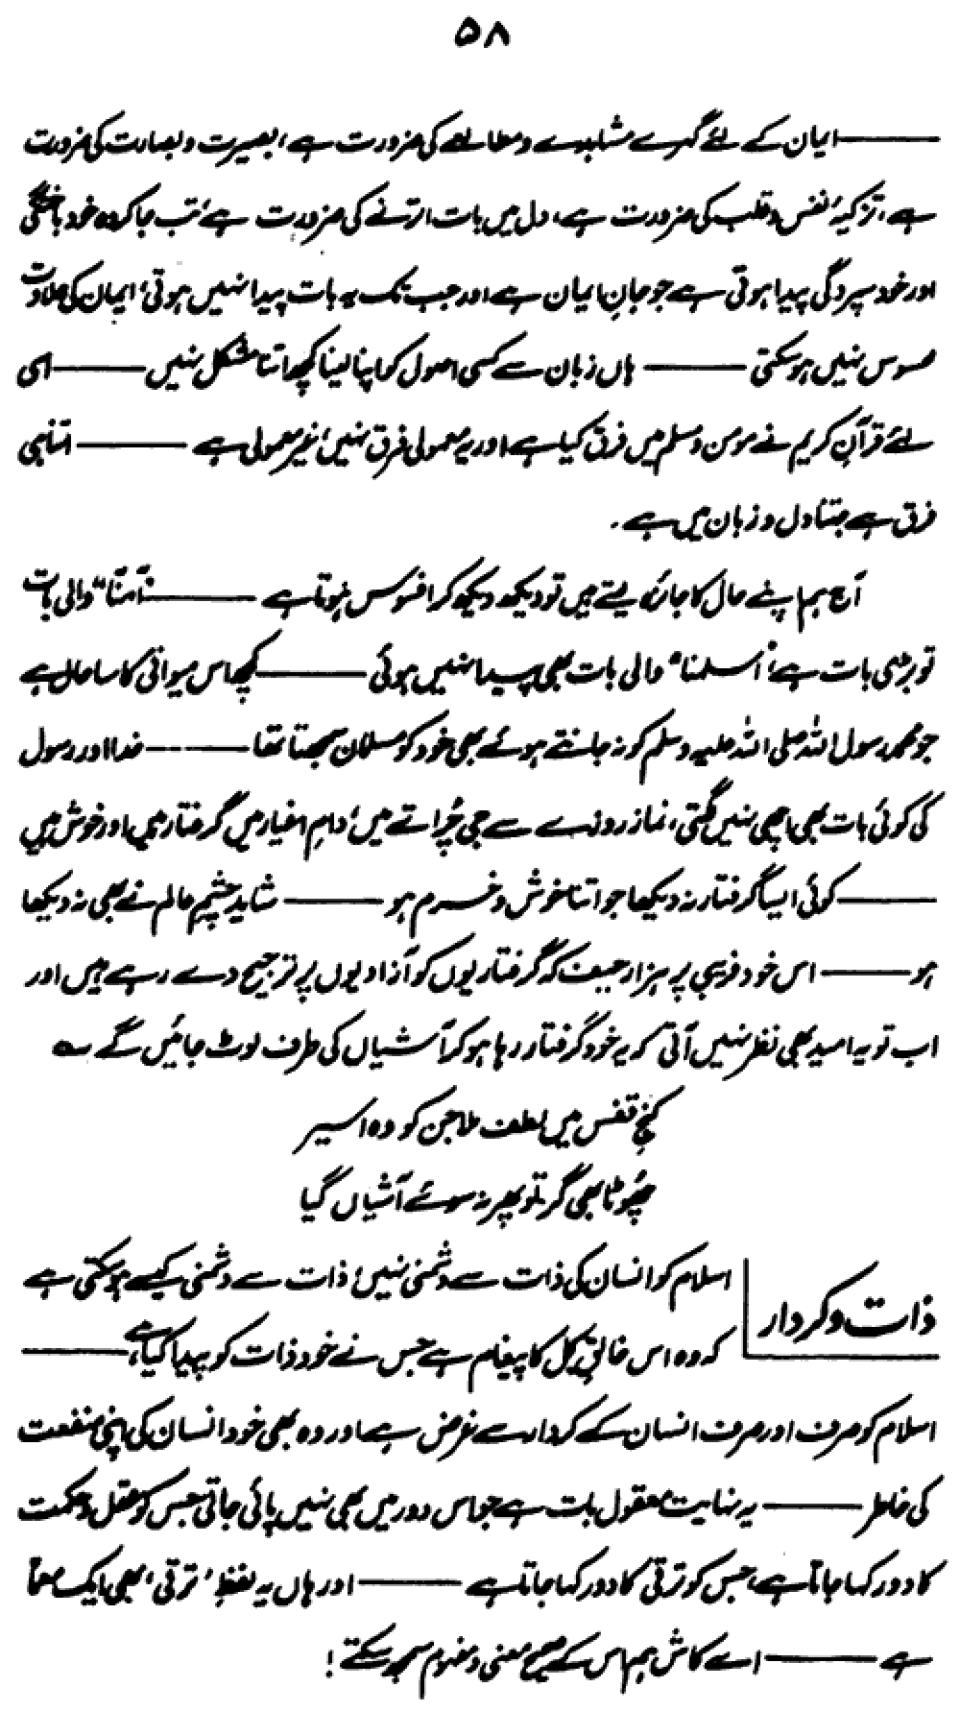 ۵۸
——— ایمان کے لئے گہرے مشاہدے و مطالعے کی ضرورت ہے، بصیرت و بصارت کی ضرورت
ہے، تزکیۂ نفس و قلب کی ضرورت ہے، دل میں بات اترنے کی ضرورت ہے، تب جا کر وہ خود باختگی
اور خود سپردگی پیدا ہوتی ہے جو جانِ ایمان ہے اور جب تک یہ بات پیدا نہیں ہوتی، ایمان کی حلاوت
محسوس نہیں ہو سکتی ——— ہاں زبان سے کسی اصول کو اپنا لینا کچھ اتنا مشکل نہیں ——— اسی
لئے قرآنِ کریم نے مومن و مسلم میں فرق کیا ہے اور یہ معمولی فرق نہیں، غیر معمولی ہے ——— اتنا ہی
فرق ہے جتنا دل و زبان میں ہے۔
آج ہم اپنے حال کا جائزہ لیتے ہیں تو دیکھ دیکھ کر افسوس ہوتا ہے ——— "آمنّا" والی بات
تو بڑی بات ہے، "اسلمنا" والی بات بھی پیدا نہیں ہوئی ——— کچھ اس میواتی کا سا حال ہے
جو محمد رسول اللہ صلی اللہ علیہ وسلم کو نہ جانتے ہوئے بھی خود کو مسلمان سمجھتا تھا ——— خدا اور رسول
کی کوئی بات بھی اچھی نہیں لگتی، نماز روزے سے جی چُراتے ہیں، دامِ اغیار میں گرفتار ہیں اور خوش ہیں
——— کوئی ایسا گرفتار نہ دیکھا جو اتنا خوش و خرم ہو ——— شاید چشمِ عالم نے بھی نہ دیکھا
ہو ——— اس خود فریبی پر ہزار حیف کہ گرفتاریوں کو آزادیوں پر ترجیح دے رہے ہیں اور
اب تو یہ امید بھی نظر نہیں آتی کہ یہ خود گرفتار رہا ہو کر آشیاں کی طرف لوٹ جائیں گے ؎
کنجِ قفس میں لطف ملا جن کو وہ اسیر
چھُوٹا بھی گر تو پھر نہ سوئے آشیاں گیا
ذات و کردار
اسلام کو انسان کی ذات سے دشمنی نہیں، ذات سے دشمنی کیسے ہو سکتی ہے
کہ وہ اس خالقِ کل کا پیغام ہے جس نے خود ذات کو پیدا کیا ہے، ———
اسلام کو صرف اور صرف انسان کے کردار سے غرض ہے اور وہ بھی خود انسان کی اپنی منفعت
کی خاطر ——— یہ نہایت معقول بات ہے جو اس دور میں بھی نہیں پائی جاتی جس کو عقل و حکمت
کا دور کہا جاتا ہے، جس کو ترقی کا دور کہا جاتا ہے ——— اور ہاں یہ لفظِ 'ترقی' بھی ایک معمّا
ہے ——— اے کاش ہم اس کے صحیح معنی و مفہوم سمجھ سکتے!